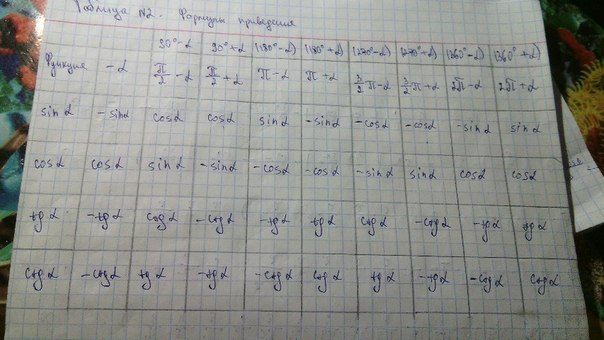 Таблица №2. Формулы приведения
Функция -α 90°-α 90°+α (180°-α) (180°+α) (270°-α) (270°+α) (360°-α) (360°+α)
π/2-α π/2+α π-α π+α 3/2π-α 3/2π+α 2π-α 2π+α
sinα -sinα cosα cosα sinα -sinα -cosα -cosα -sinα sinα
cosα cosα sinα -sinα -cosα -cosα -sinα sinα cosα cosα
tgα -tgα ctgα -ctgα -tgα tgα ctgα -ctgα -tgα tgα
ctgα -ctgα tgα -tgα -ctgα ctgα tgα -tgα -ctgα ctgα